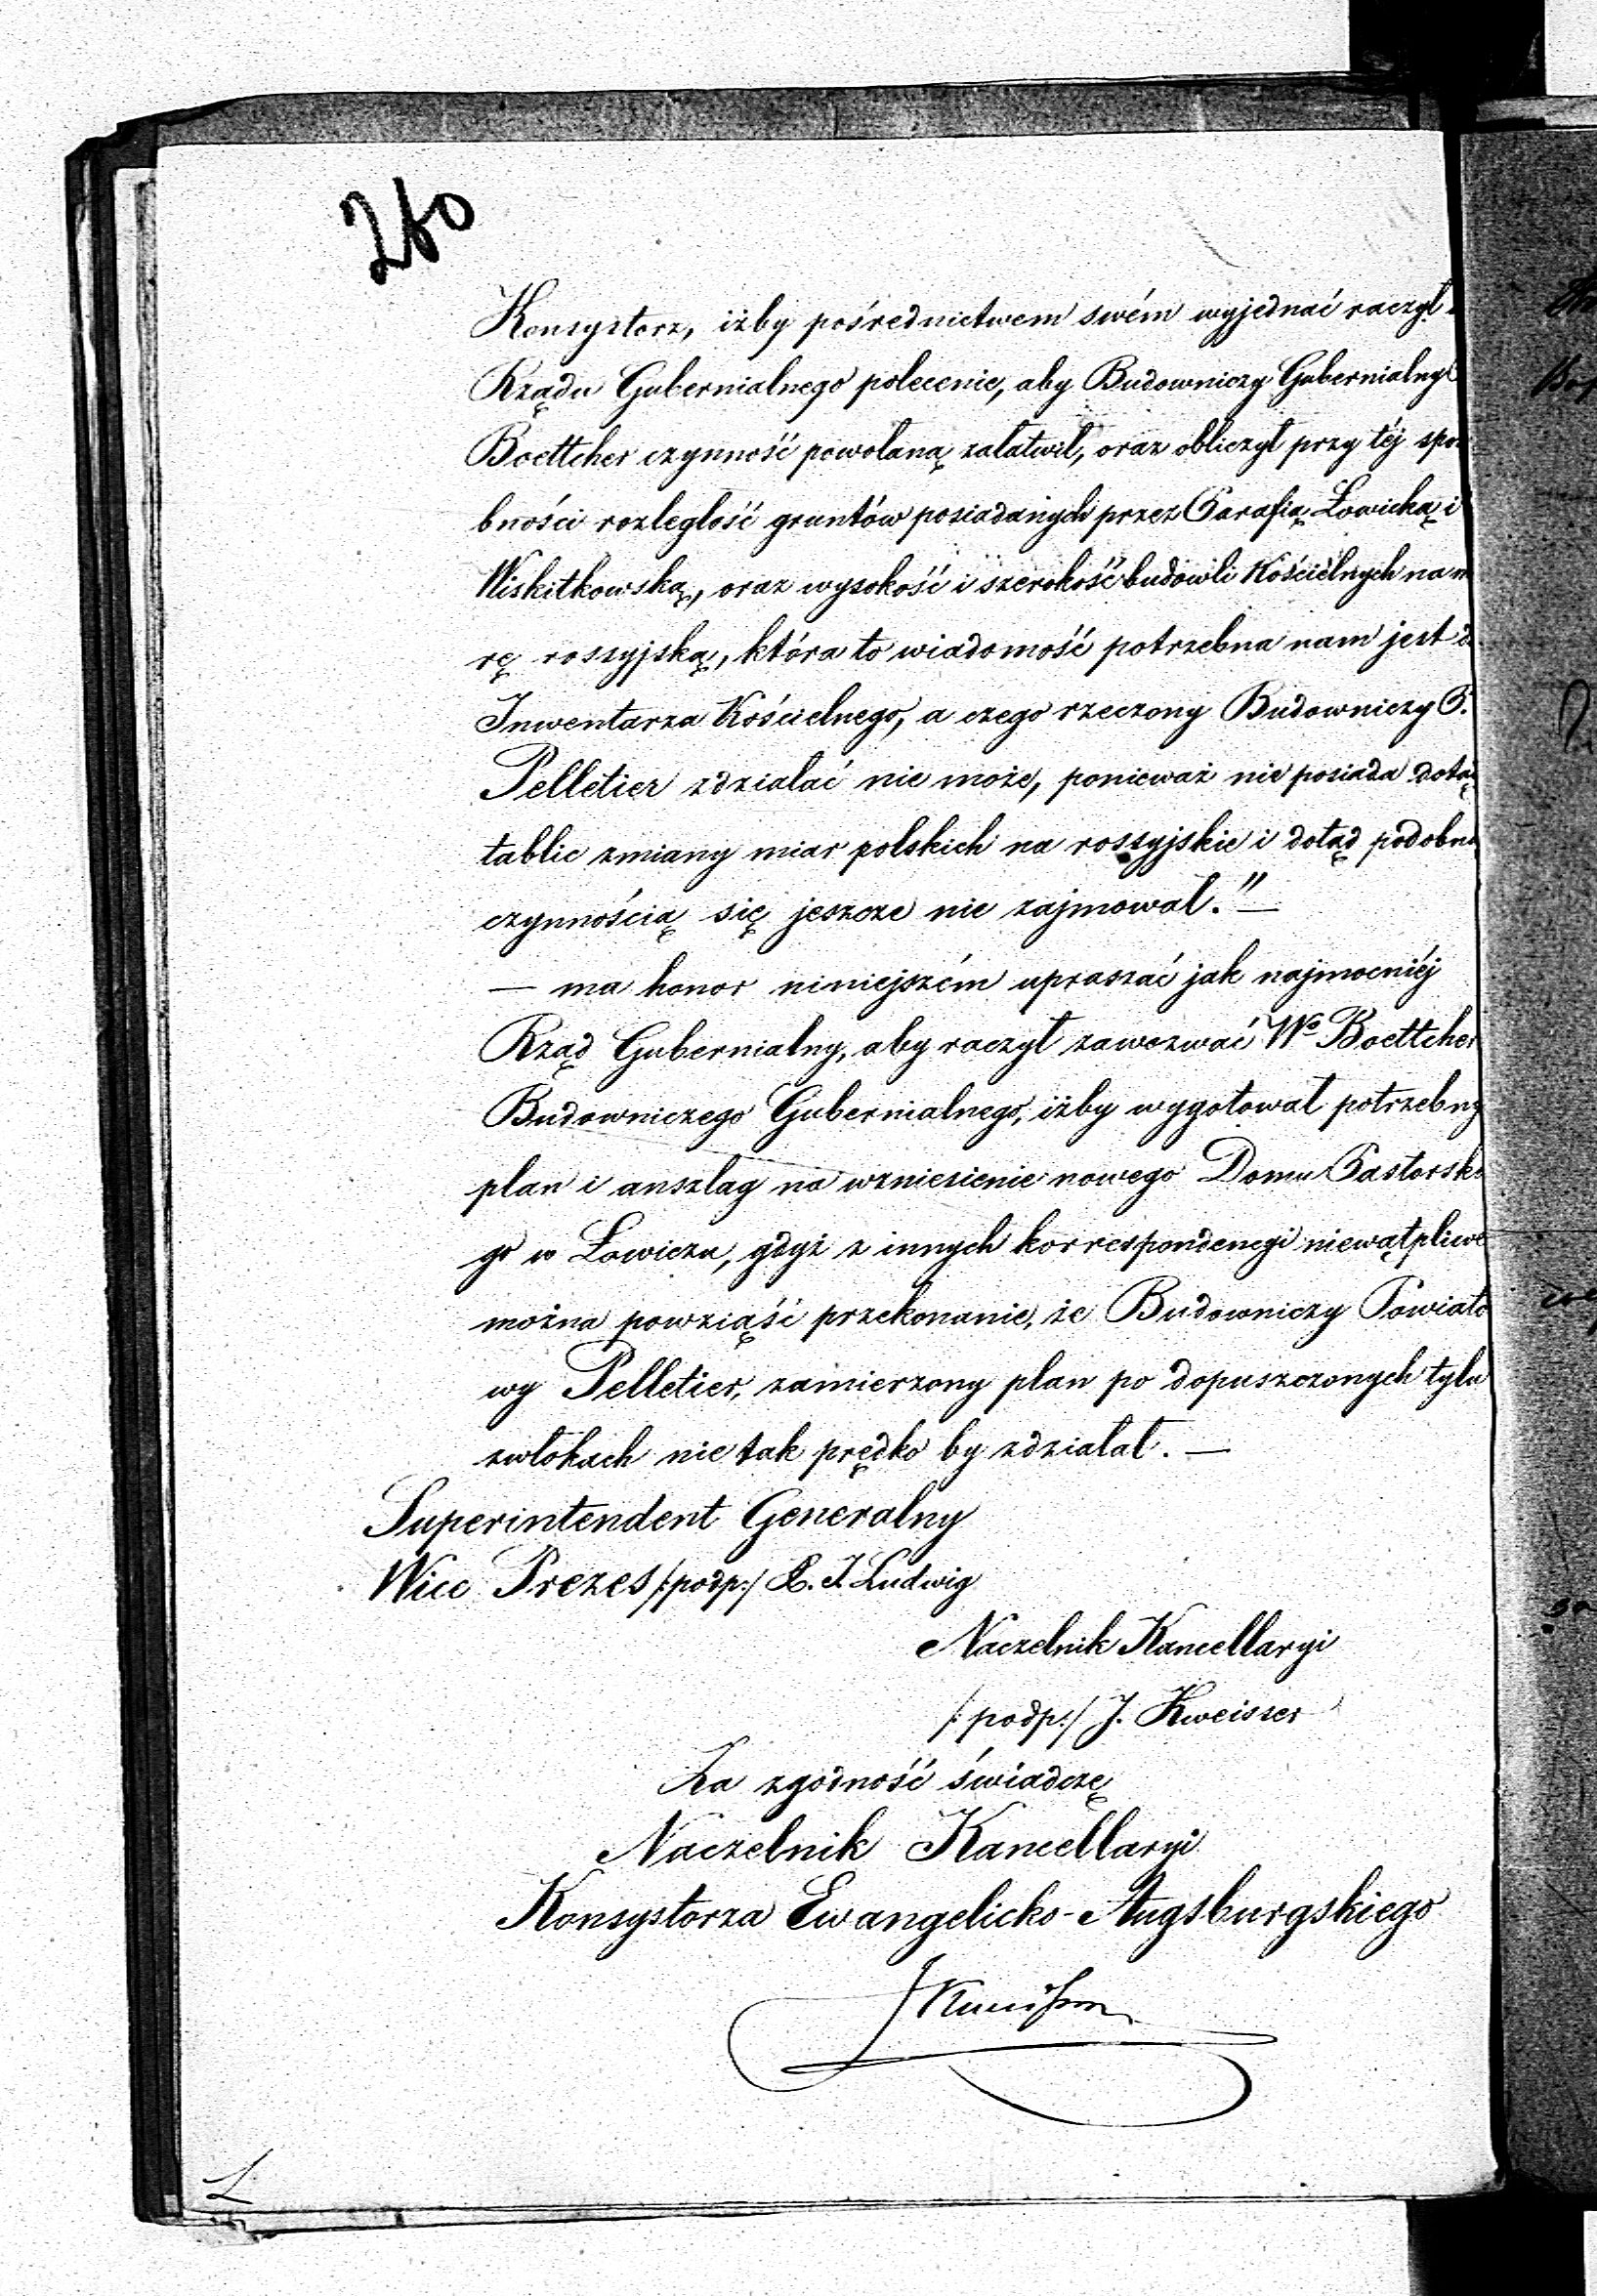 260
Konsystorz, iżby pośrednictwem swém wyjednać raczył
Rządu Gubernialnego polecenie, aby Budowniczy Gubernialny
Boettcher czynność powołaną załatwił, oraz obliczył przy téj spo
bności rozległość gruntów posiadanych przez Parafią Łowicką i
Wiskitkowską, oraz wysokość i szerokość budowli Kościelnych na m
rę rossyjską, która to wiadomość potrzebna nam jest d
Inwentarza Kościelnego, a czego rzeczony Budowniczy P.
Pelletier zdziałać nie może, ponieważ nie posiada dotą
tablic zmiany miar polskich na rossyjskie i dotąd podobn
czynnością się jeszcze nie zajmował." —
— ma honor niniejszém upraszać jak najmocniéj
Rząd Gubernialny, aby raczył zawezwać Wo Boettcher
Budowniczego Gubernialnego, iżby wygotował potrzebny
plan i anszlag na wzniesienie nowego Domu Pastorsk
go w Łowiczu, gdyż z innych korrespondencyi niewątpliwe
można powziąść przekonanie, że Budowniczy Powiato
wy Pelletier, zamierzony plan po dopuszczonych tylu
zwłokach nie tak prędko by zdziałał. —
Superintendent Generalny
Wice Prezes /:podp:/ X. J. Ludwig
Naczelnik Kancellaryi
/:podp:/ J. Kweisser
Za zgodność świadczę
Naczelnik Kancellaryi
Konsystorza Ewangelicko-Augsburgskiego